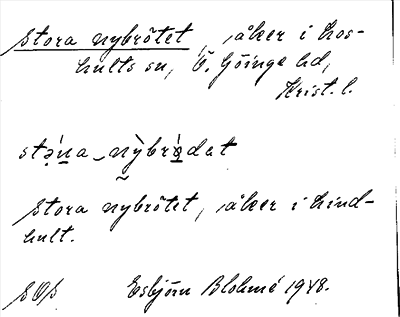 Stora nybrötet, åker i Los-
hults sn, Ö. Göinge hd,
Krist. l.
stǫ́na _ nỳbrǫ́dat
Stora nybrötet, åker i Hind-
hult.
Esbjörn Blohmé 1948.